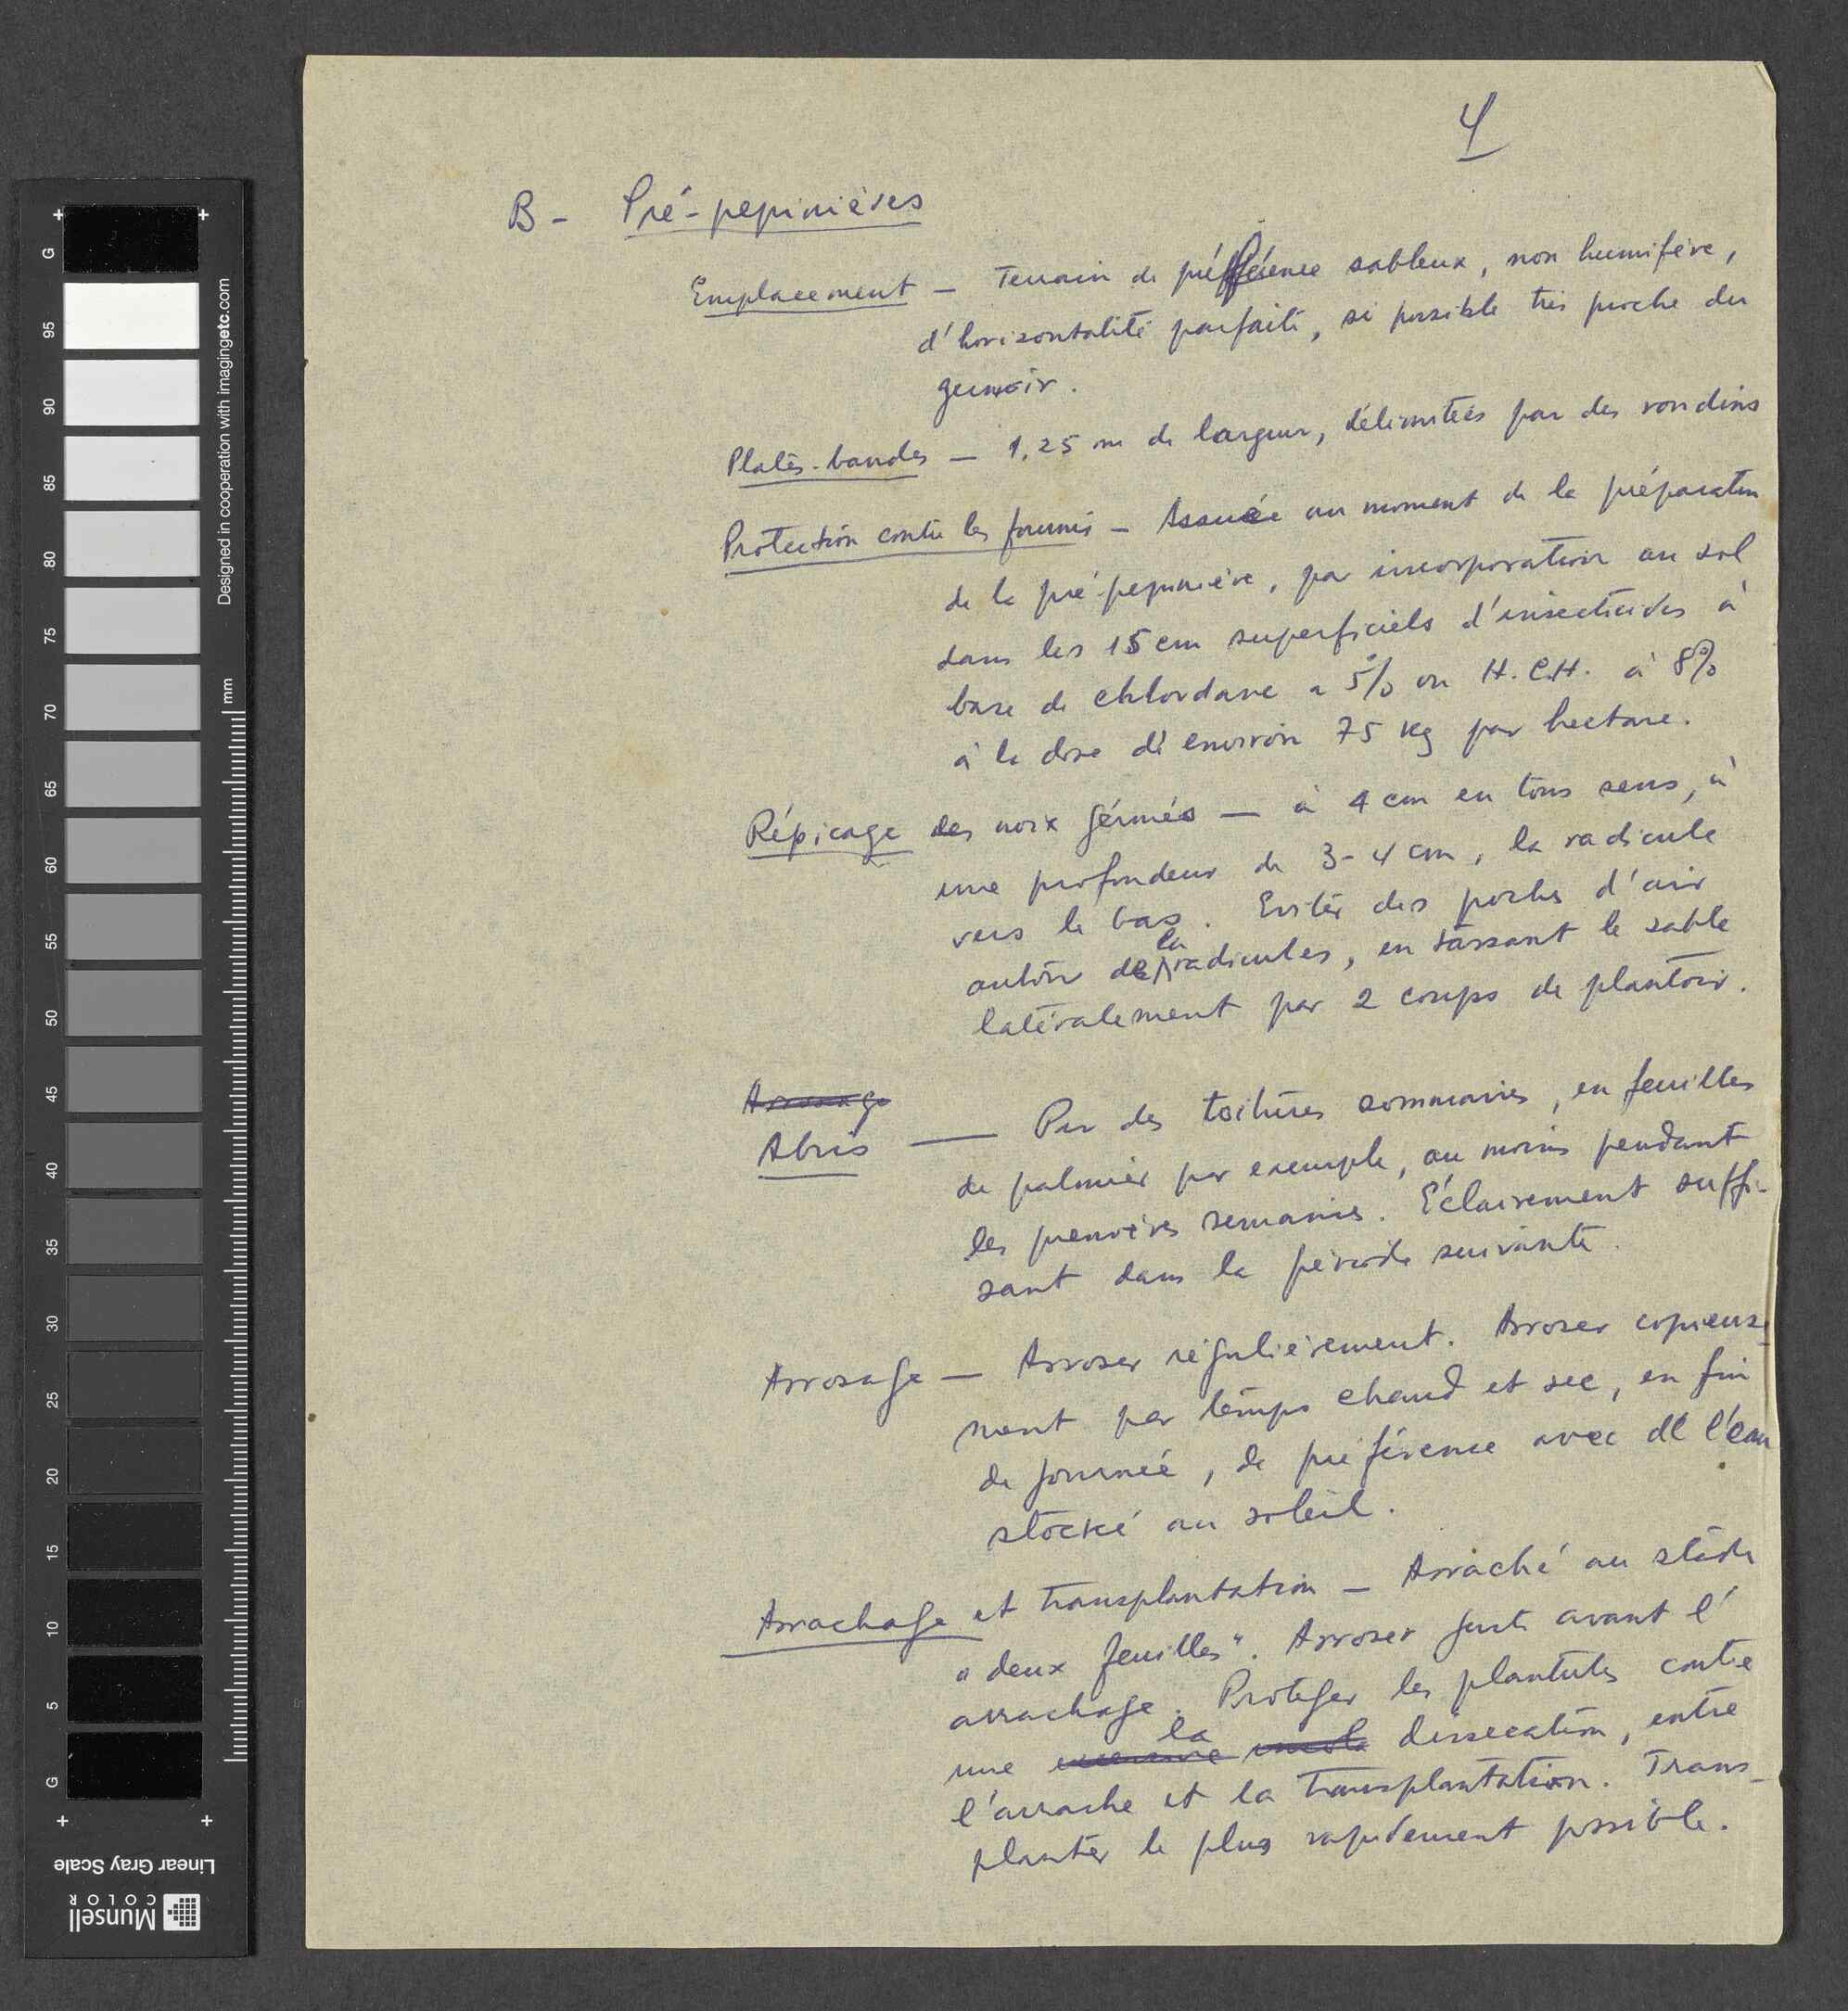 4
B - Pré-pepinières
Emplacement — Terrain de préférence sableux, non humifère,
d'horizontalité parfaite, si possible très proche du
germoir.
Plates-bandes — 1,25 m de largeur, délimitées par des rondins
Protection contre les fourmis — Assurée au moment de la préparation
de la pré-pepinière, par incorporation au sol
dans les 15 cm superficiels d'insecticides à
base de chlordane a 5% ou H.C.H. à 8%
à la dose d'environ 75 kg par hectare.
Répicage des noix germés — à 4 cm en tous sens, à
une profondeur de 3-4 cm, la radicule
vers le bas. Eviter des poches d'air
autour de la radicules, en tassant le sable
latéralement par 2 coups de plantoir.
Arrosage
Abris — Par des toitures sommaires, en feuilles
de palmier par exemple, au moins pendant
les premières semaines. Éclairement suffi-
sant dans la période suivante.
Arrosage — Arroser régulièrement. Arroser copieuse-
ment par temps chaud et sec, en fin
de journée, de préférence avec de l'eau
stocké au soleil.
Arrachage et transplantation — Arraché au stade
"deux feuilles". Arroser juste avant l'
arrachage. Protéger les plantules contre
une la dissecation, entre
l'arrache et la transplantation. Trans-
planter le plus rapidement possible.
G
95
90
85
80
75
70
65
60
55
50
45
40
35
30
25
20
15
10
5
G
mm
Designed in cooperation with imagingetc.com
Linear Gray Scale
Munsell
COLOR